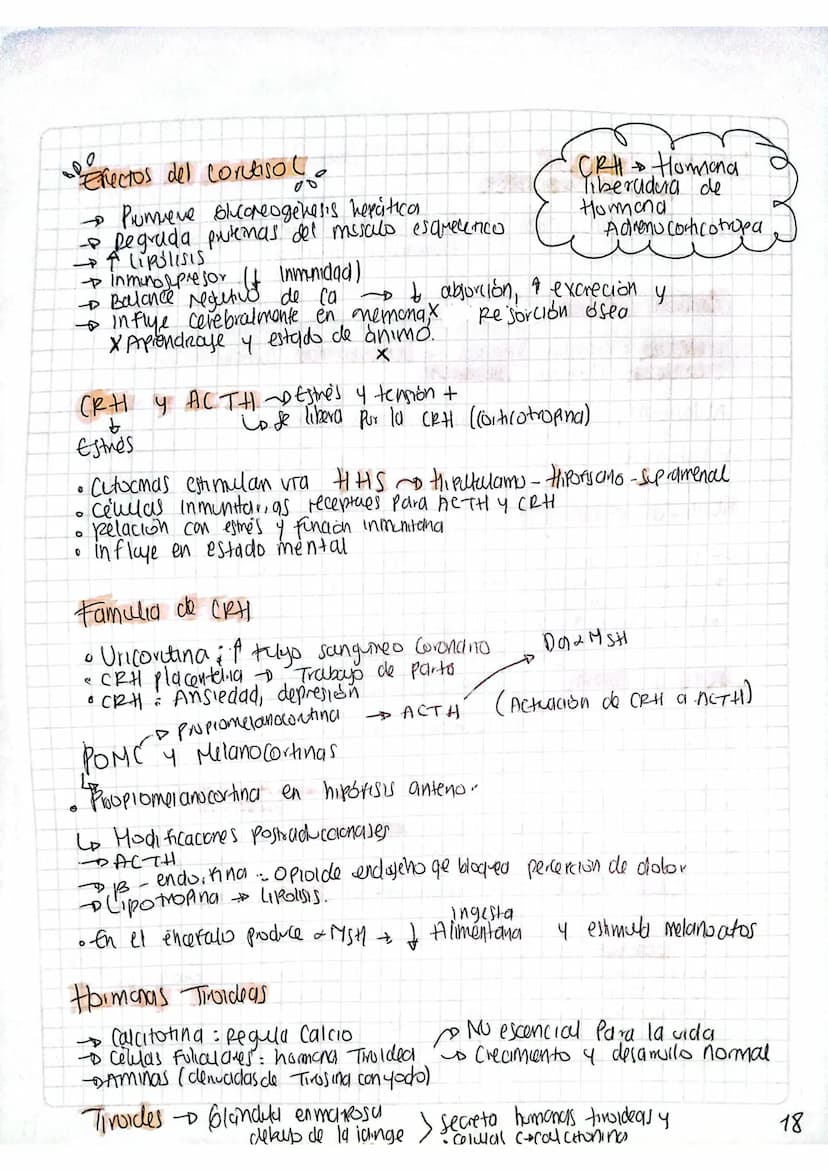 Efectos del cortisol
→ Pumueve Gluconeogénesis hepática
→ Degrada proteinas del músculo esquelético
→ ↑ lipólisis
→ Inmunospresor (↓ Inmunidad)
→ Balance negativo de Ca → ↓ absorción, ↑ excreción y
Resorción ósea
→ Influye cerebralmente en memoria x
x Aprendizaje y estado de ánimo.
x
CRH → Hormona
liberadora de
Hormona
Adrenocorticotropa
CRH y ACTH → Estrés y tensión +
↓
Estrés
↳ Se libera por la CRH (Corticotropina)
• Citocinas estimulan vía HHS → Hipotalamo - Hipofisiario - Suprarrenal
• Células inmunitarias receptores para ACTH y CRH
• Relación con estrés y función inmunitaria
• Influye en estado mental
Familia de CRH
• Uricortina ; ↑ flujo sanguineo Coronario
• CRH placentaria → Trabajo de parto
• CRH : Ansiedad, depresión
→ Propiomelanocortina → ACTH → Da α MSH
(Actuación de CRH a ACTH)
POMC y Melanocortinas
↳
• Proopiomelanocortina en hipófisis anterior
↳ Modificaciones Postraduccionales
→ ACTH
→ β - endorfina : Opioide endógeno qe bloquea percepción de dolor
→ Lipotropina → lipolisis.
• En el encefalo produce α MSH → ↓ ingesta Alimentaria y estimula melanocitos
Hormonas Tiroideas
→ Calcitotina : Regula Calcio
→ Células Foliculares : hormona Tiroidea
→ Aminas (derivadas de Tirosina con yodo)
→ No escencial Para la vida
→ Crecimiento y desarrollo normal
Tiroides → Glándula en mariposa
debajo de la laringe > secreta hormonas tiroideas y
• Celulas C → calcitonina
18